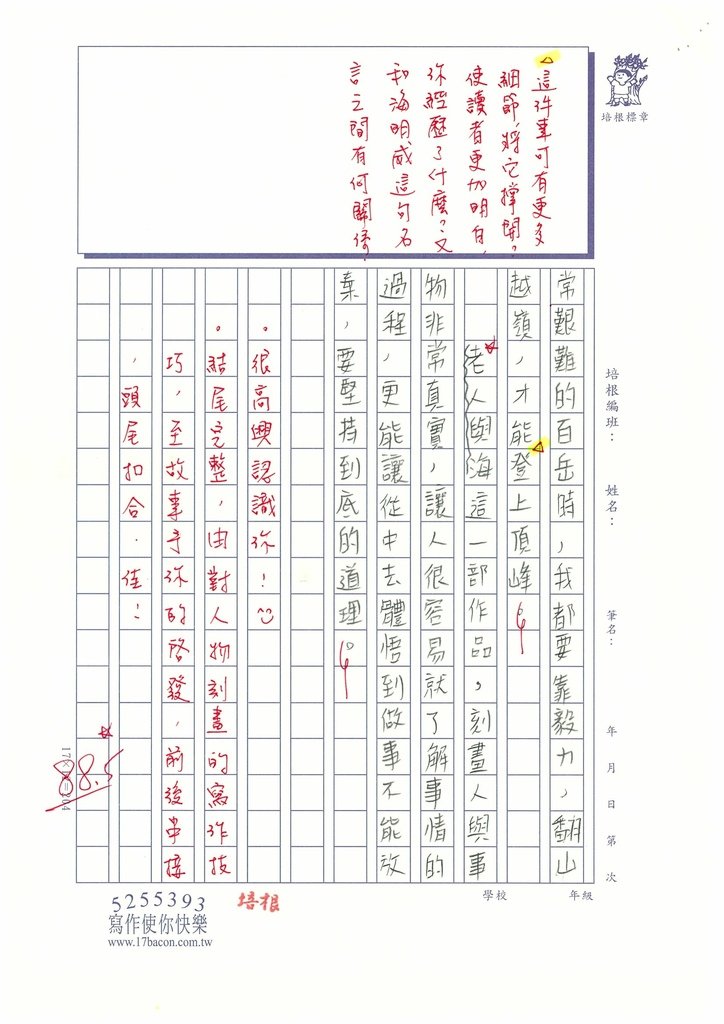 培根標章
△這件事可有更多
細節，將它撐開？
使讀者更加明白，
你經歷了什麼？又
和海明威這句名
言之間有何關係？
培根編班：
姓名：
筆名：
年 月 日 第 次
常艱難的百岳時，我都要靠毅力，翻山
越嶺，才能登上頂峰。
老人與海這一部作品，刻畫人與事
物非常真實，讓人很容易就了解事情的
過程，更能讓從中去體悟到做事不能放
棄，要堅持到底的道理。
。很高興認識你！
。結尾完整，由對人物刻畫的寫作技
巧，至故事予你的啓發，前後串接
，頭尾扣合．佳！
88.5
學校
年級
5255393
培根
寫作使你快樂
www.17bacon.com.tw